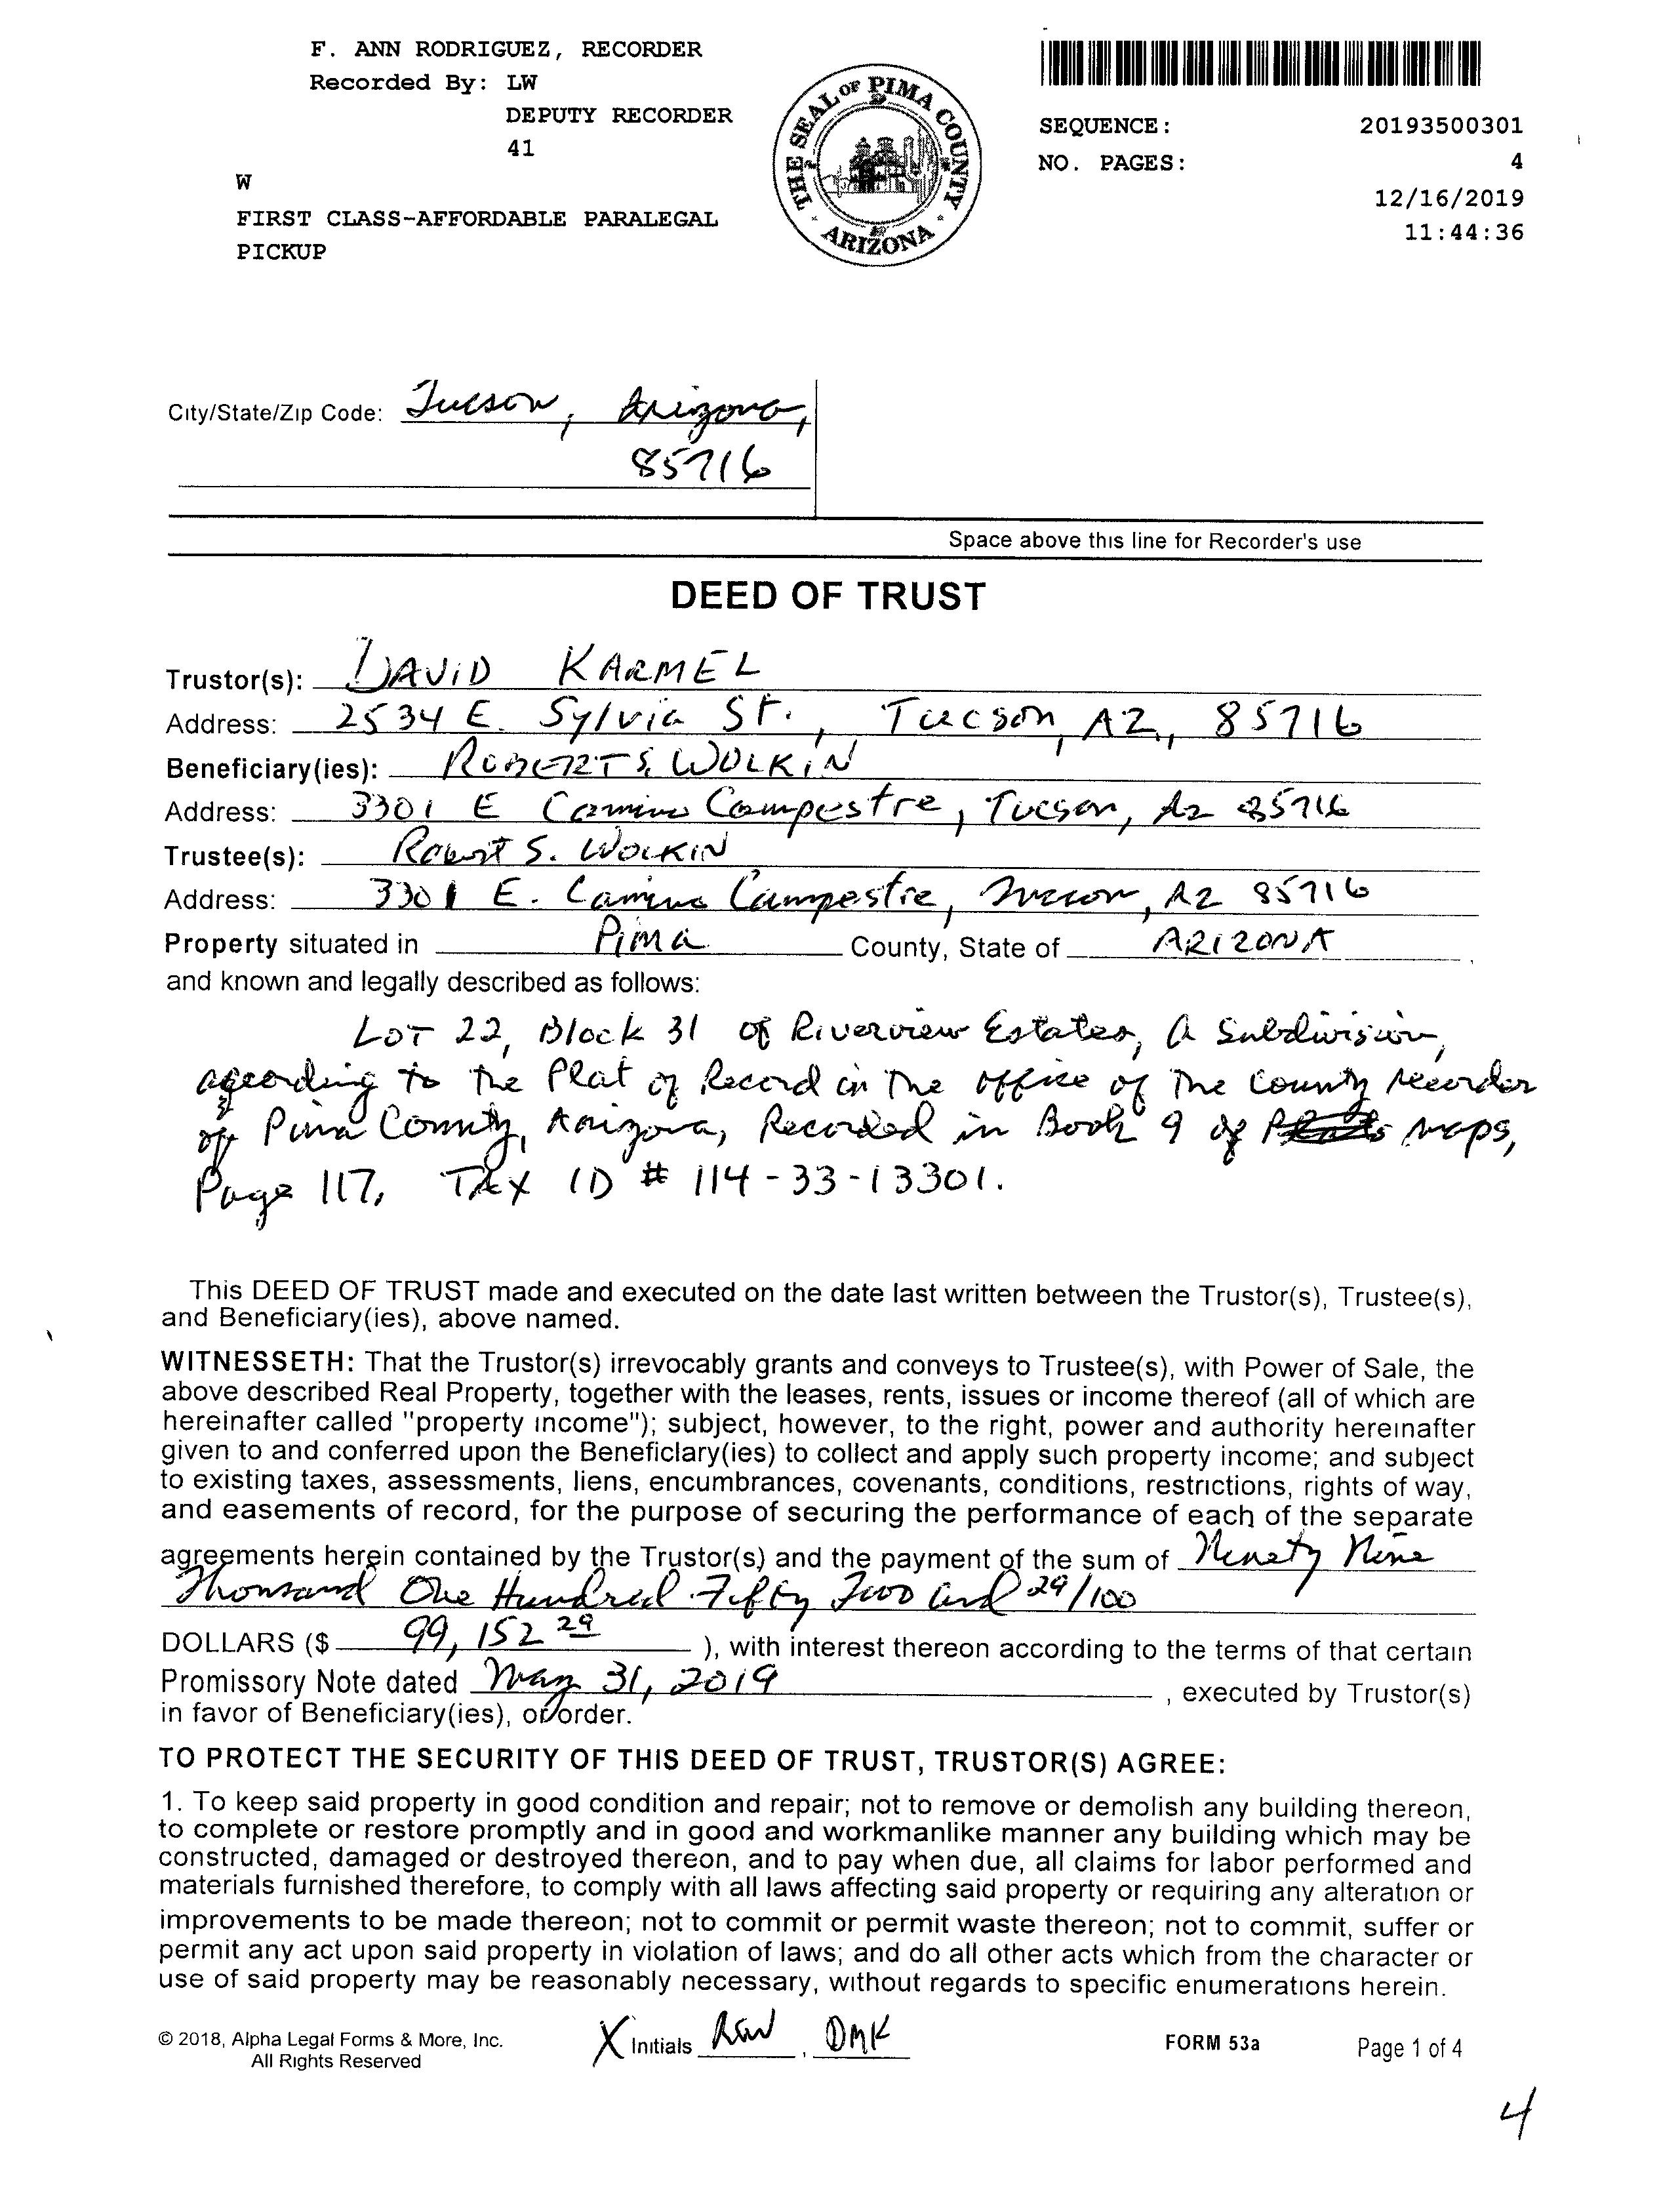 F. ANN RODRIGUEZ, RECORDER
Recorded By: LW
DEPUTY RECORDER
41
W
FIRST CLASS-AFFORDABLE PARALEGAL
PICKUP
THE SEAL OF PIMA COUNTY
ARIZONA
SEQUENCE: 20193500301
NO. PAGES: 4
12/16/2019
11:44:36
City/State/Zip Code: Tucson, Arizona,
85716
Space above this line for Recorder's use
DEED OF TRUST
Trustor(s): DAVID KARMEL
Address: 2534 E. Sylvia St., Tucson, AZ, 85716
Beneficiary(ies): ROBERT S. WOLKIN
Address: 3301 E Camino Campestre, Tucson, Az 85716
Trustee(s): Robert S. WOLKIN
Address: 3301 E. Camino Campestre, Tucson, AZ 85716
Property situated in Pima County, State of ARIZONA,
and known and legally described as follows:
LOT 22, Block 31 of Riverview Estates, A Subdivision,
according to the Plat of Record in the office of the County Recorder
of Pima County, Arizona, Recorded in Book 9 of Maps,
Page 117, TAX ID # 114-33-13301.
This DEED OF TRUST made and executed on the date last written between the Trustor(s), Trustee(s),
and Beneficiary(ies), above named.
WITNESSETH: That the Trustor(s) irrevocably grants and conveys to Trustee(s), with Power of Sale, the
above described Real Property, together with the leases, rents, issues or income thereof (all of which are
hereinafter called "property income"); subject, however, to the right, power and authority hereinafter
given to and conferred upon the Beneficiary(ies) to collect and apply such property income; and subject
to existing taxes, assessments, liens, encumbrances, covenants, conditions, restrictions, rights of way,
and easements of record, for the purpose of securing the performance of each of the separate
agreements herein contained by the Trustor(s) and the payment of the sum of Ninety Nine
Thousand One Hundred Fifty Two and 29/100
DOLLARS ($ 99,152 29 ), with interest thereon according to the terms of that certain
Promissory Note dated May 31, 2019, executed by Trustor(s)
in favor of Beneficiary(ies), or order.
TO PROTECT THE SECURITY OF THIS DEED OF TRUST, TRUSTOR(S) AGREE:
1. To keep said property in good condition and repair; not to remove or demolish any building thereon,
to complete or restore promptly and in good and workmanlike manner any building which may be
constructed, damaged or destroyed thereon, and to pay when due, all claims for labor performed and
materials furnished therefore, to comply with all laws affecting said property or requiring any alteration or
improvements to be made thereon; not to commit or permit waste thereon; not to commit, suffer or
permit any act upon said property in violation of laws; and do all other acts which from the character or
use of said property may be reasonably necessary, without regards to specific enumerations herein.
© 2018, Alpha Legal Forms & More, Inc.
All Rights Reserved
X Initials RSW, DMK
FORM 53a
Page 1 of 4
4